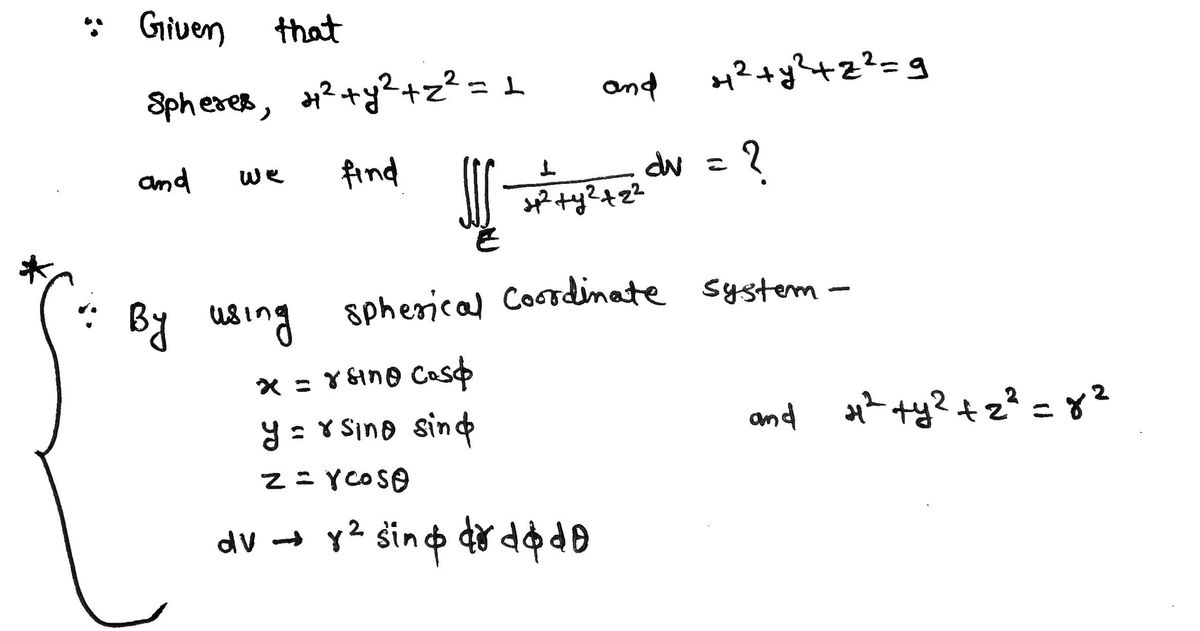 ∵ Given that
Spheres, x²+y²+z² = 1 and x²+y²+z² = 9
and we find ∭_E 1/(x²+y²+z²) dv = ?
* ∵ By using spherical Coordinate system –
x = r sinθ cosϕ
y = r sinθ sinϕ and x²+y²+z² = r²
z = r cosθ
dv → r² sinϕ dr dϕ dθ